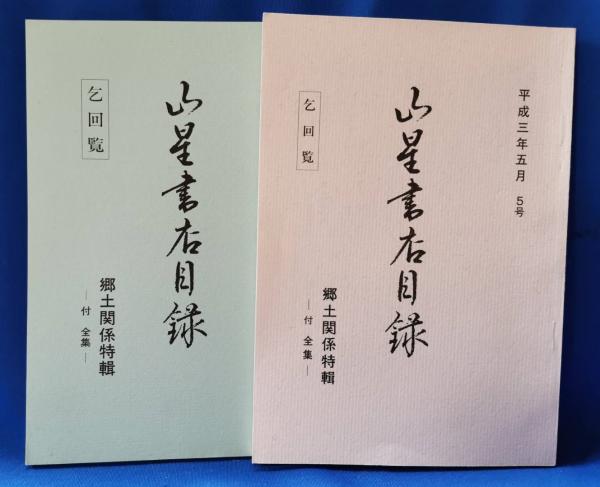 平成三年五月 5号
山星書店目録
乞回覧
郷土関係特輯
―付 全集―
山星書店目録
乞回覧
郷土関係特輯
―付 全集―